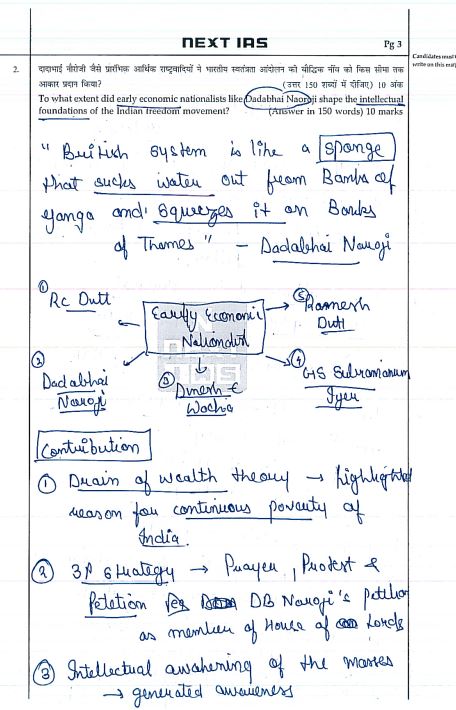 NEXT IAS
Pg 3
Candidates must
write on this mar
2.
दादाभाई नौरोजी जैसे प्रारंभिक आर्थिक राष्ट्रवादियों ने भारतीय स्वतंत्रता आंदोलन को बौद्धिक नींव को किस सीमा तक
आकार प्रदान किया?
(उत्तर 150 शब्दों में दीजिए) 10 अंक
To what extent did early economic nationalists like Dadabhai Naoroji shape the intellectual
foundations of the Indian freedom movement?
(Answer in 150 words) 10 marks
" British system is like a sponge
that sucks water out from Banks of
ganga and squeezes it on Banks
of Thames " - Dadabhai Naroji
① RC Dutt
Early Economic
Nationalist
⑤ Ramesh
Dutt
② Dadabhai
Naroji
③ Dinesh E
Wacha
④ GS Subramanium
Iyer
Contribution
① Drain of wealth theory → highlighted
reason for continuous poverty of
India.
② 3P strategy → Prayer, Protest &
Petetion DB Naroji's petition
as member of House of Lords
③ Intellectual awakening of the masses
→ generated awareness